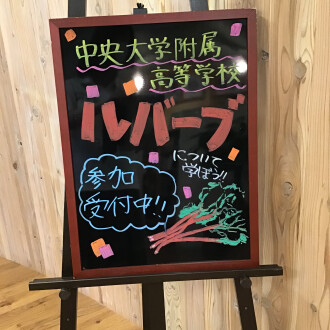 中央大学附属
高等学校
ルバーブ
について
学ぼう!!
参加
受付中!!